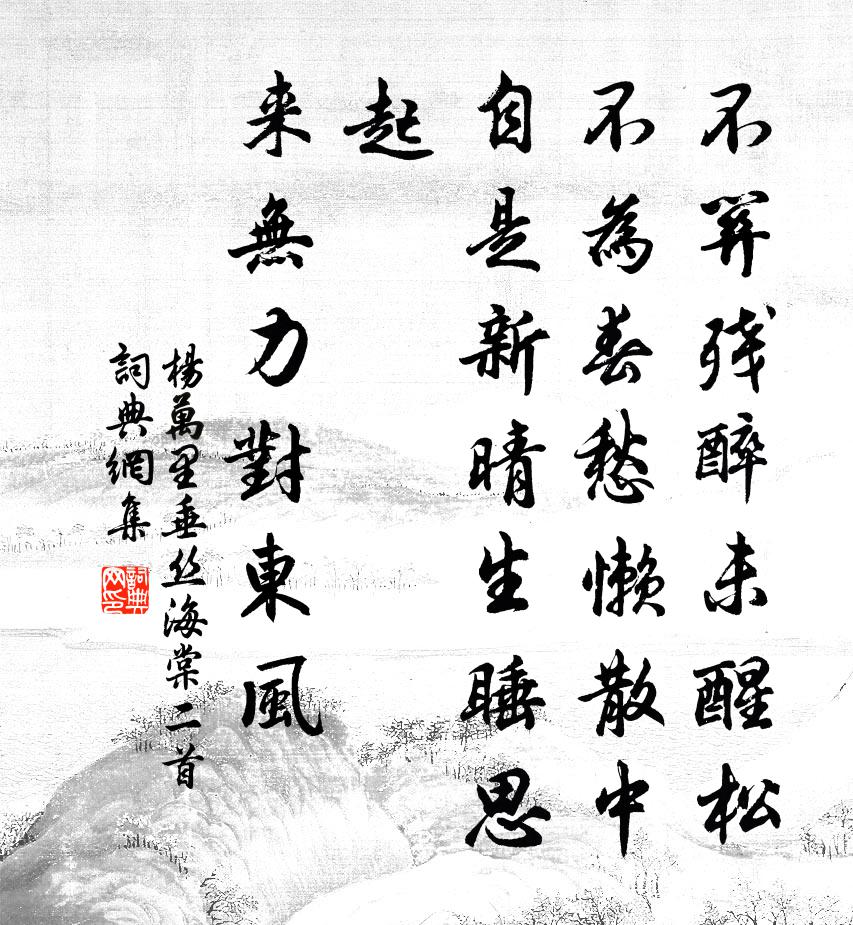 不算残醉未醒松
不為春愁懒散中
自是新晴生睡思
起
来無力對東風
楊萬里垂丝海棠二首
詞典網集
詞典网印